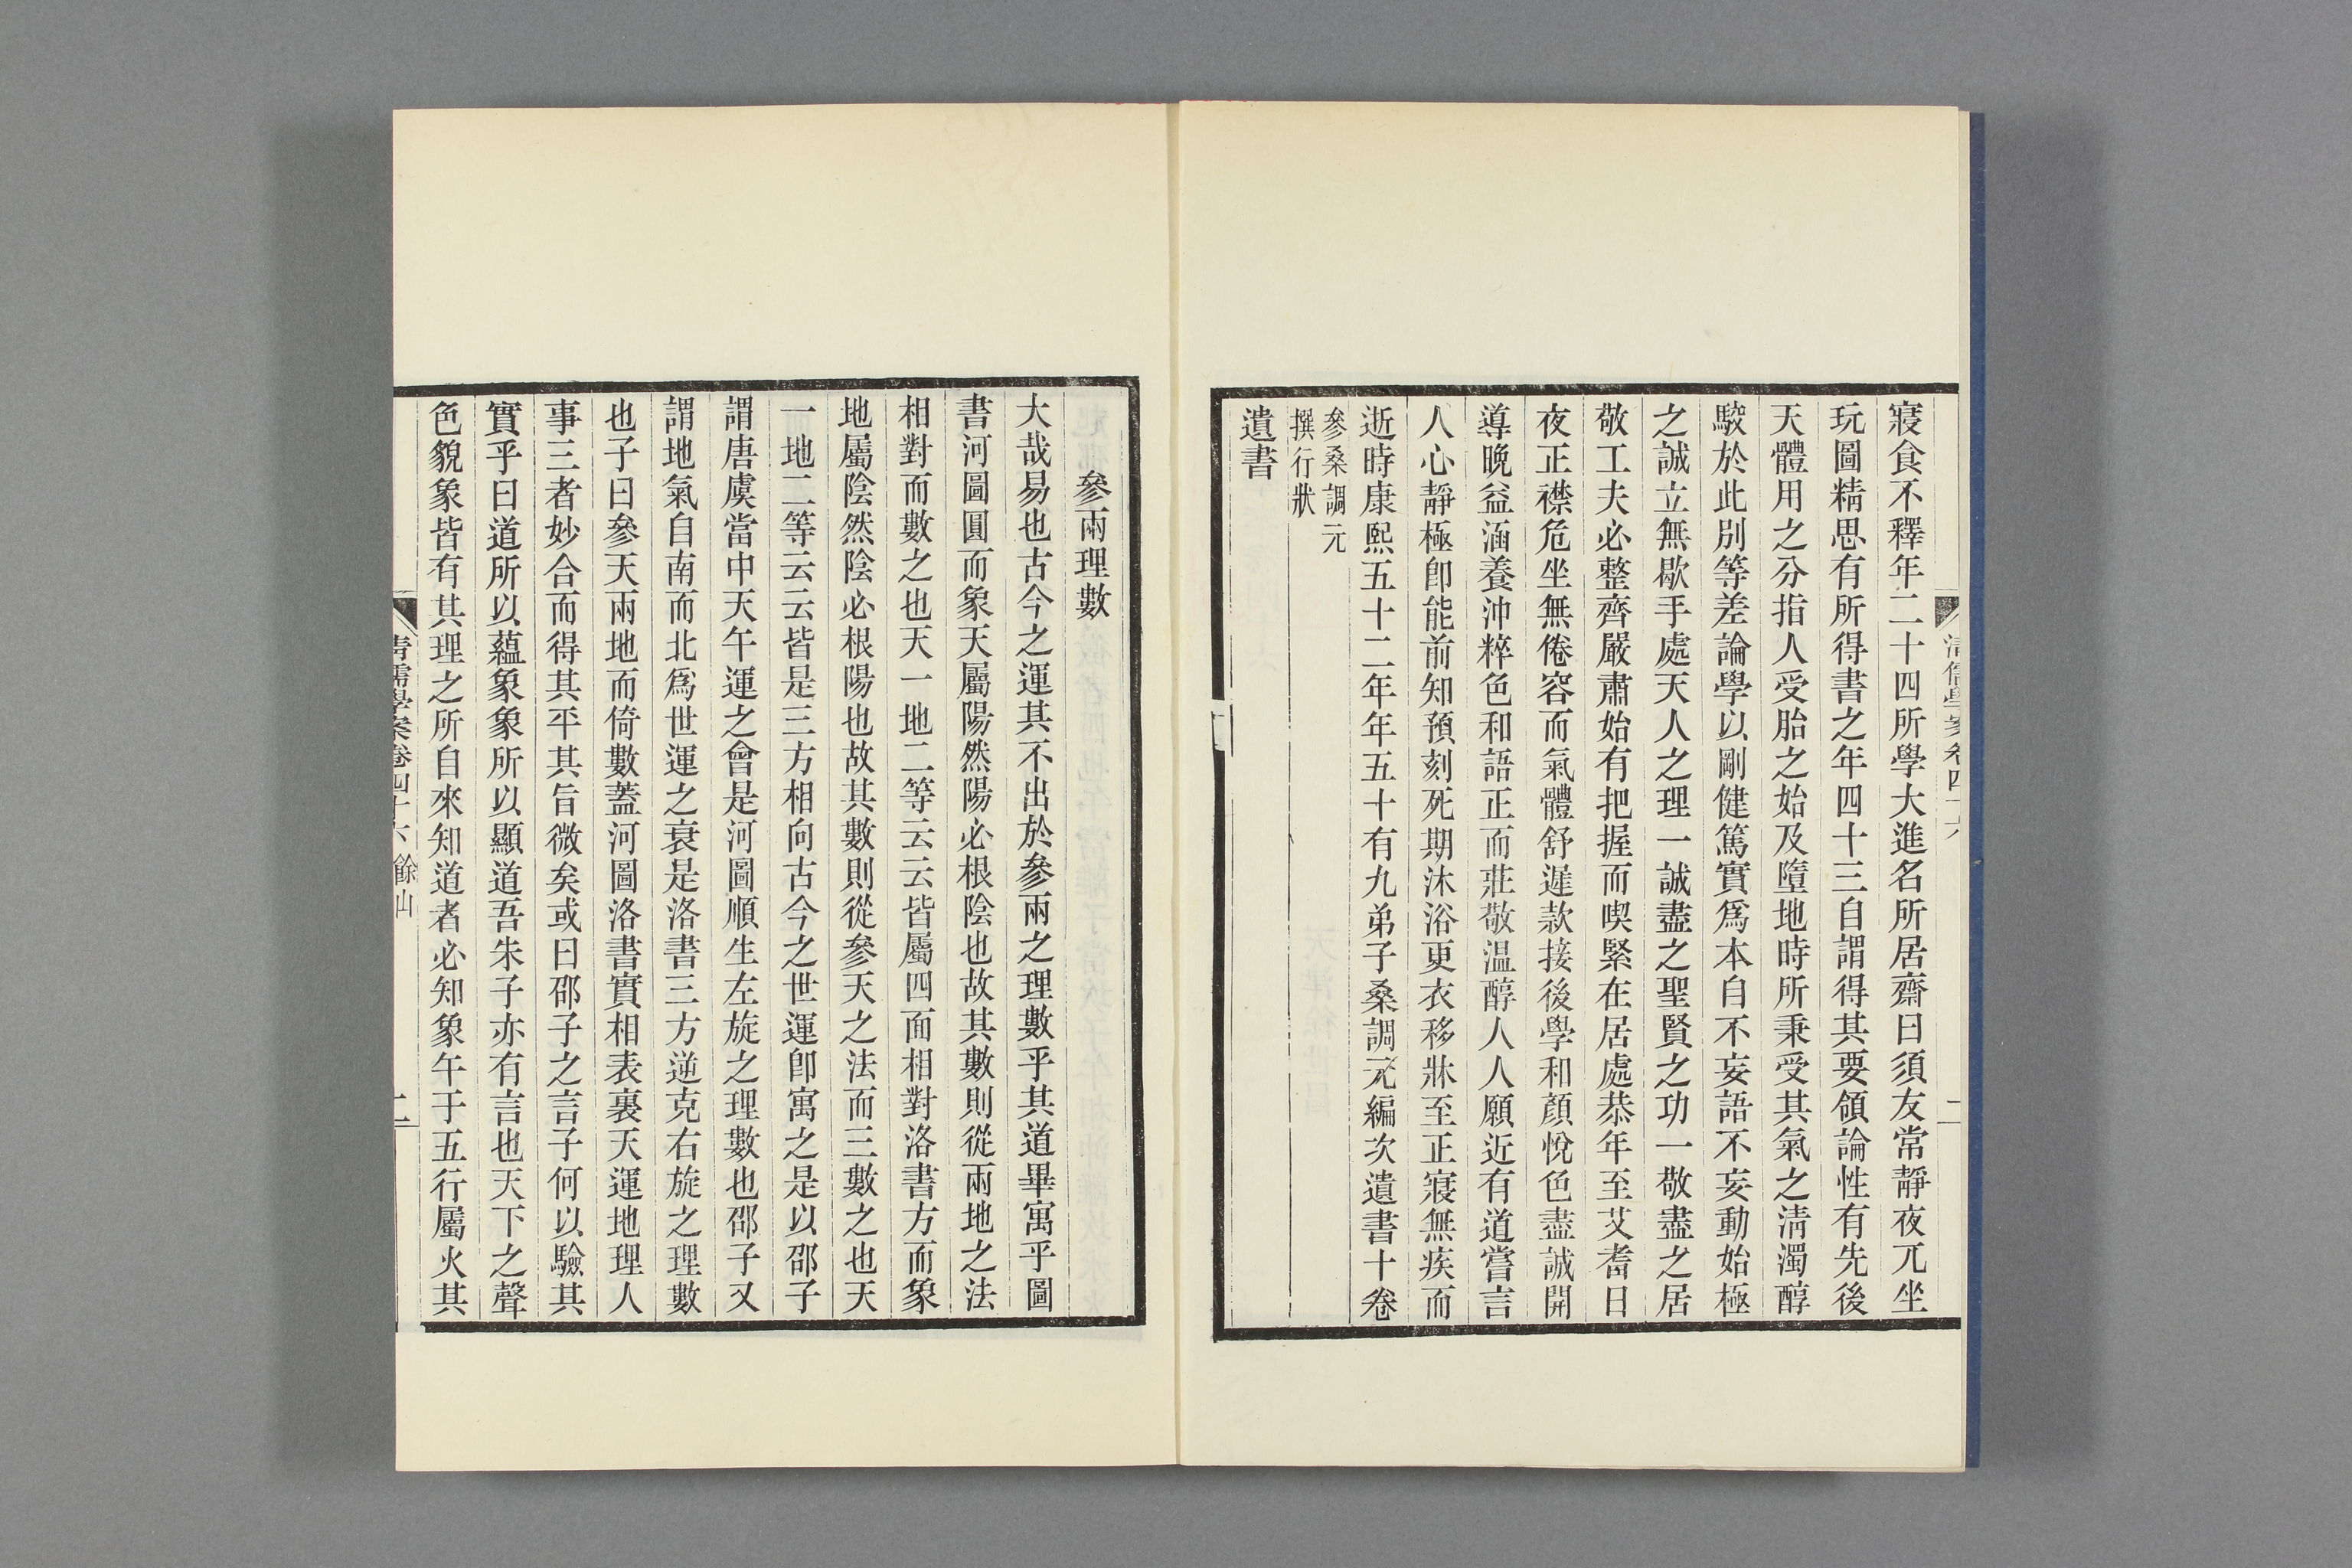 清儒學案卷四十六
二
寢食不釋年二十四所學大進名所居齋曰須友常靜夜兀坐
玩圖精思有所得書之年四十三自謂得其要領論性有先後
天體用之分指人受胎之始及墮地時所秉受其氣之淸濁醇
駮於此別等差論學以剛健篤實爲本自不妄語不妄動始極
之誠立無歇手處天人之理一誠盡之聖賢之功一敬盡之居
敬工夫必整齊嚴肅始有把握而喫緊在居處恭年至艾耆日
夜正襟危坐無倦容而氣體舒遲款接後學和顏悅色盡誠開
導晩益涵養沖粹色和語正而莊敬温醇人人願近有道嘗言
人心靜極卽能前知預刻死期沐浴更衣移牀至正寢無疾而
逝時康熙五十二年年五十有九弟子桑調元編次遺書十卷
參桑調元
撰行狀
遺書
參兩理數
大哉易也古今之運其不出於參兩之理數乎其道畢寓乎圖
書河圖圓而象天屬陽然陽必根陰也故其數則從兩地之法
相對而數之也天一地二等云云皆屬四面相對洛書方而象
地屬陰然陰必根陽也故其數則從參天之法而三數之也天
一地二等云云皆是三方相向古今之世運卽寓之是以邵子
謂唐虞當中天午運之會是河圖順生左旋之理數也邵子又
謂地氣自南而北爲世運之衰是洛書三方逆克右旋之理數
也子曰參天兩地而倚數蓋河圖洛書實相表裏天運地理人
事三者妙合而得其平其旨微矣或曰邵子之言子何以驗其
實乎曰道所以蘊象象所以顯道吾朱子亦有言也天下之聲
色貌象皆有其理之所自來知道者必知象午于五行屬火其
清儒學案卷四十六 餘山
二